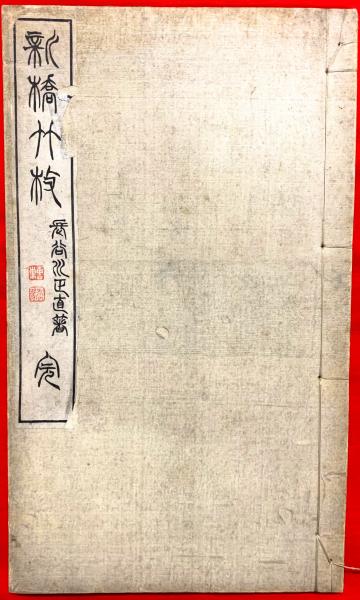 新橋竹枝
長谷川正直著
完